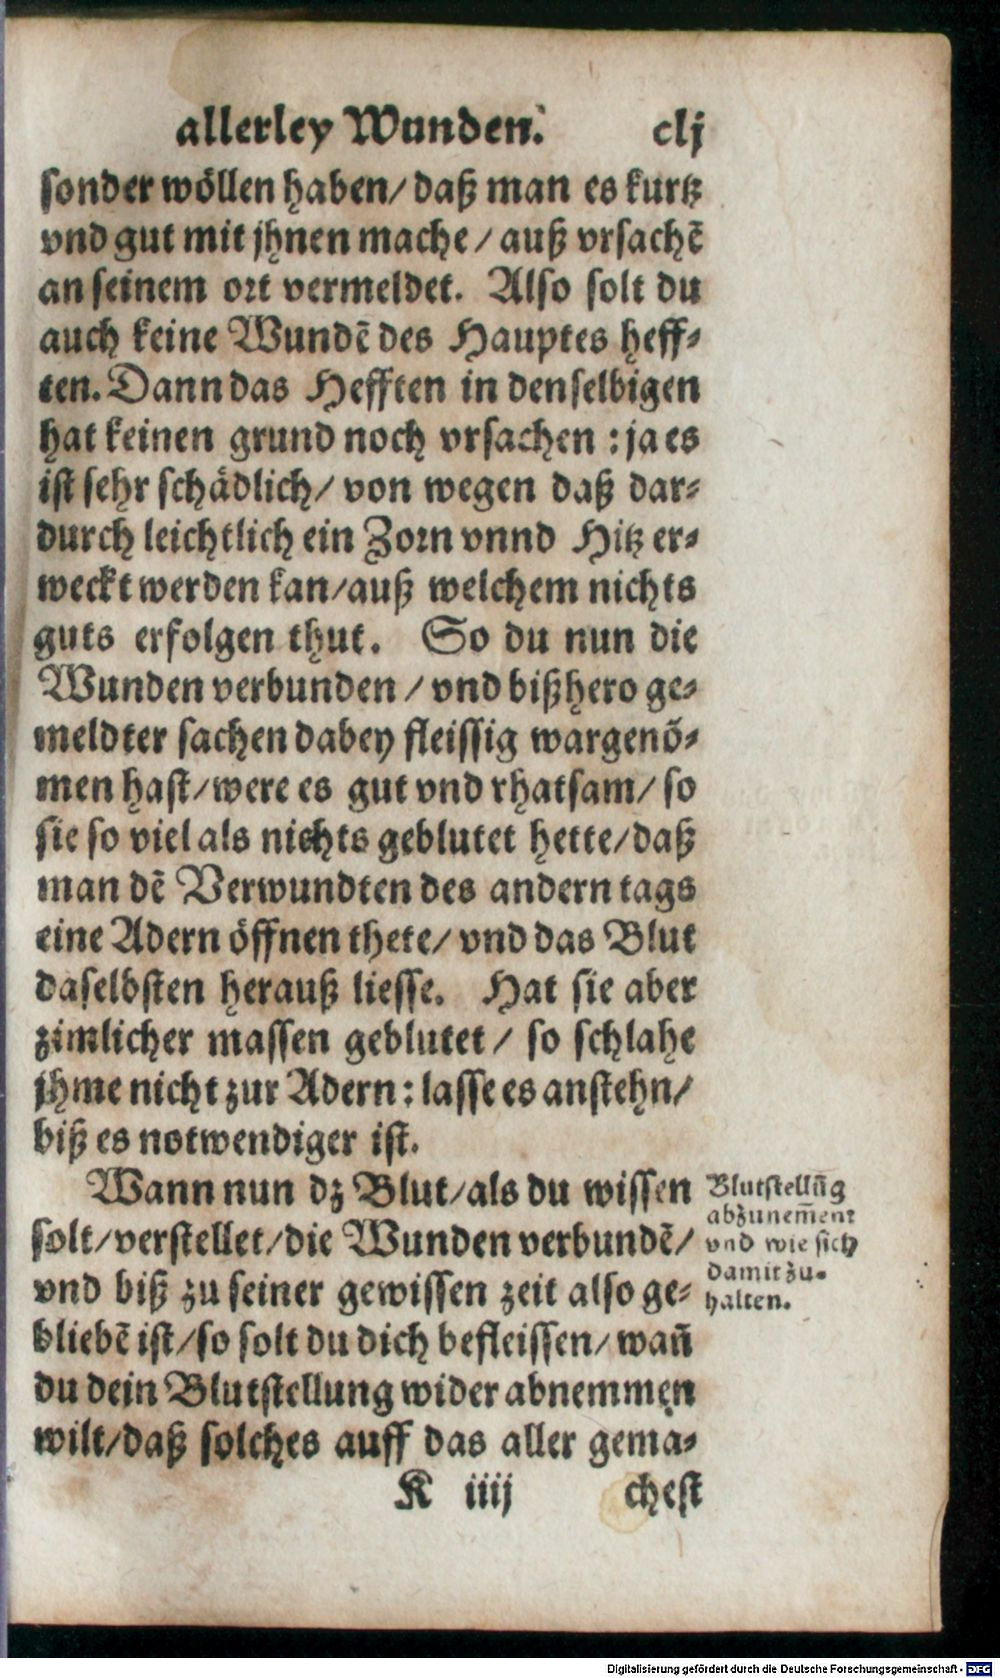 allerley Wunden. clj
sonder wöllen haben/ daß man es kurtz
vnd gut mit jhnen mache / auß vrsachẽ
an seinem ort vermeldet. Also solt du
auch keine Wundẽ des Hauptes heff-
ten. Dann das Hefften in denselbigen
hat keinen grund noch vrsachen : ja es
ist sehr schädlich/ von wegen daß dar-
durch leichtlich ein Zorn vnnd Hitz er-
weckt werden kan/auß welchem nichts
guts erfolgen thut. So du nun die
Wunden verbunden / vnd bißhero ge-
meldter sachen dabey fleissig wargenõ-
men hast/were es gut vnd rhatsam/ so
sie so viel als nichts geblutet hette/daß
man dẽ Verwundten des andern tags
eine Adern öffnen thete/ vnd das Blut
daselbsten herauß liesse. Hat sie aber
zimlicher massen geblutet / so schlahe
jhme nicht zur Adern: lasse es anstehn/
biß es notwendiger ist.
Wann nun dz Blut/als du wissen
solt/verstellet/die Wunden verbundẽ/
vnd biß zu seiner gewissen zeit also ge-
bliebẽ ist/so solt du dich befleissen/ wañ
du dein Blutstellung wider abnemmen
wilt/daß solches auff das aller gema-
Blutstellũg
abzunem̃en
vnd wie sich
damit zu-
halten.
K iiij chest
Digitalisierung gefördert durch die Deutsche Forschungsgemeinschaft - DFG